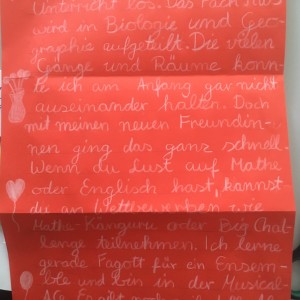 Unterricht los. Das Fach
wird in Biologie und Geo-
graphie aufgeteilt. Die vielen
Gänge und Räume konn-
te ich am Anfang gar nicht
auseinander halten. Doch
mit meinen neuen Freundin-
nen ging das ganz schnell.
Wenn du Lust auf Mathe
oder Englisch hast, kannst
du an Wettbewerben wie
Mathe-Känguru oder Big Chal-
lenge teilnehmen. Ich lerne
gerade Fagott für ein Ensem-
ble und bin in der Musical-
AG. Es gibt